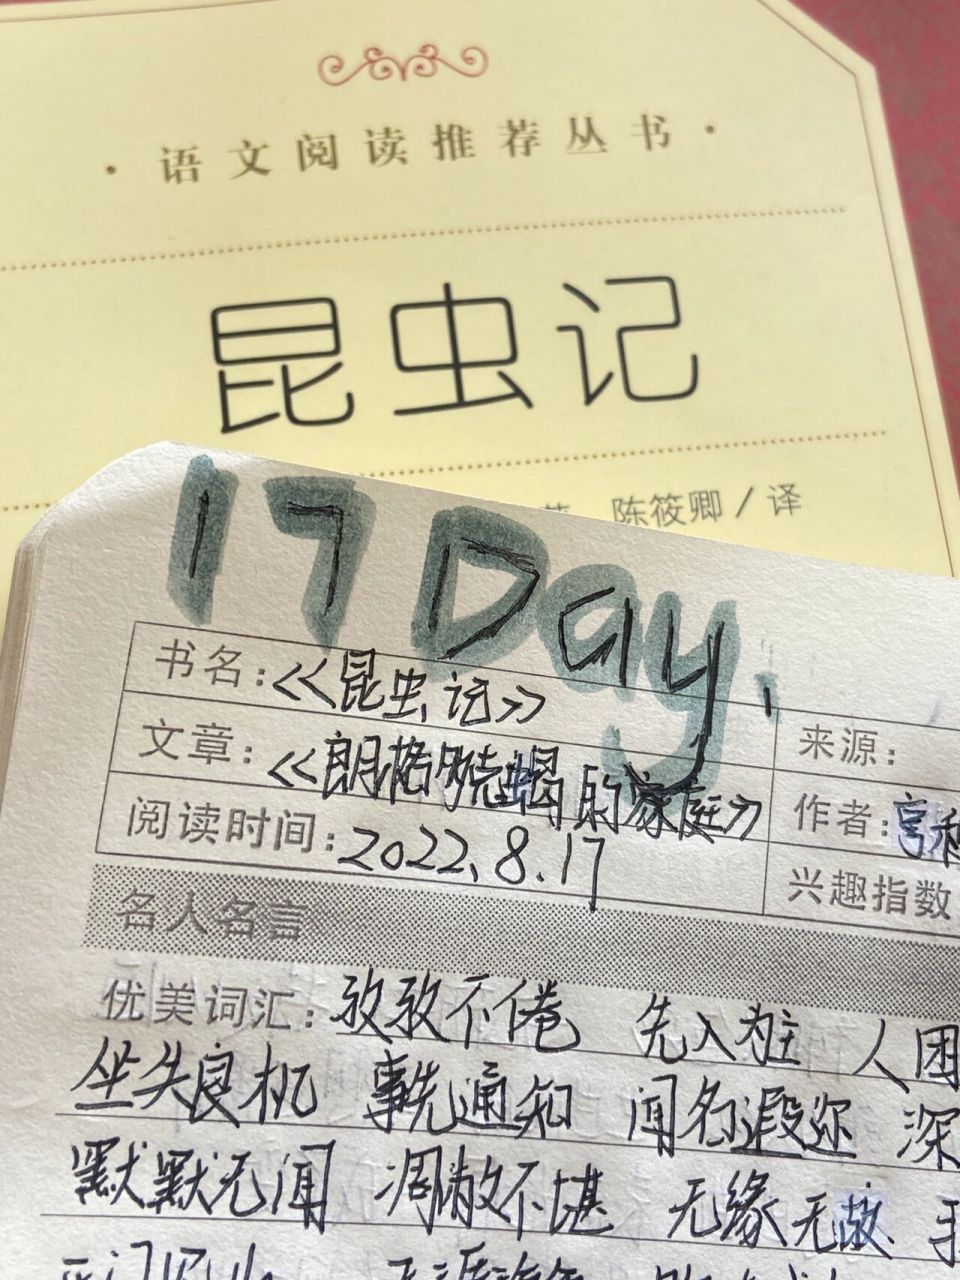 ·语文阅读推荐丛书·
昆虫记
陈筱卿/译
17 Day.
书名：<<昆虫记>>
来源：
文章：<<朗格多克蝎的家庭>>
作者：亨利
阅读时间：2022.8.17
兴趣指数
名人名言
优美词汇：孜孜不倦 先入为主 人困
坐失良机 事先通知 闻名遐迩 深
默默无闻 凋敝不堪 无缘无故